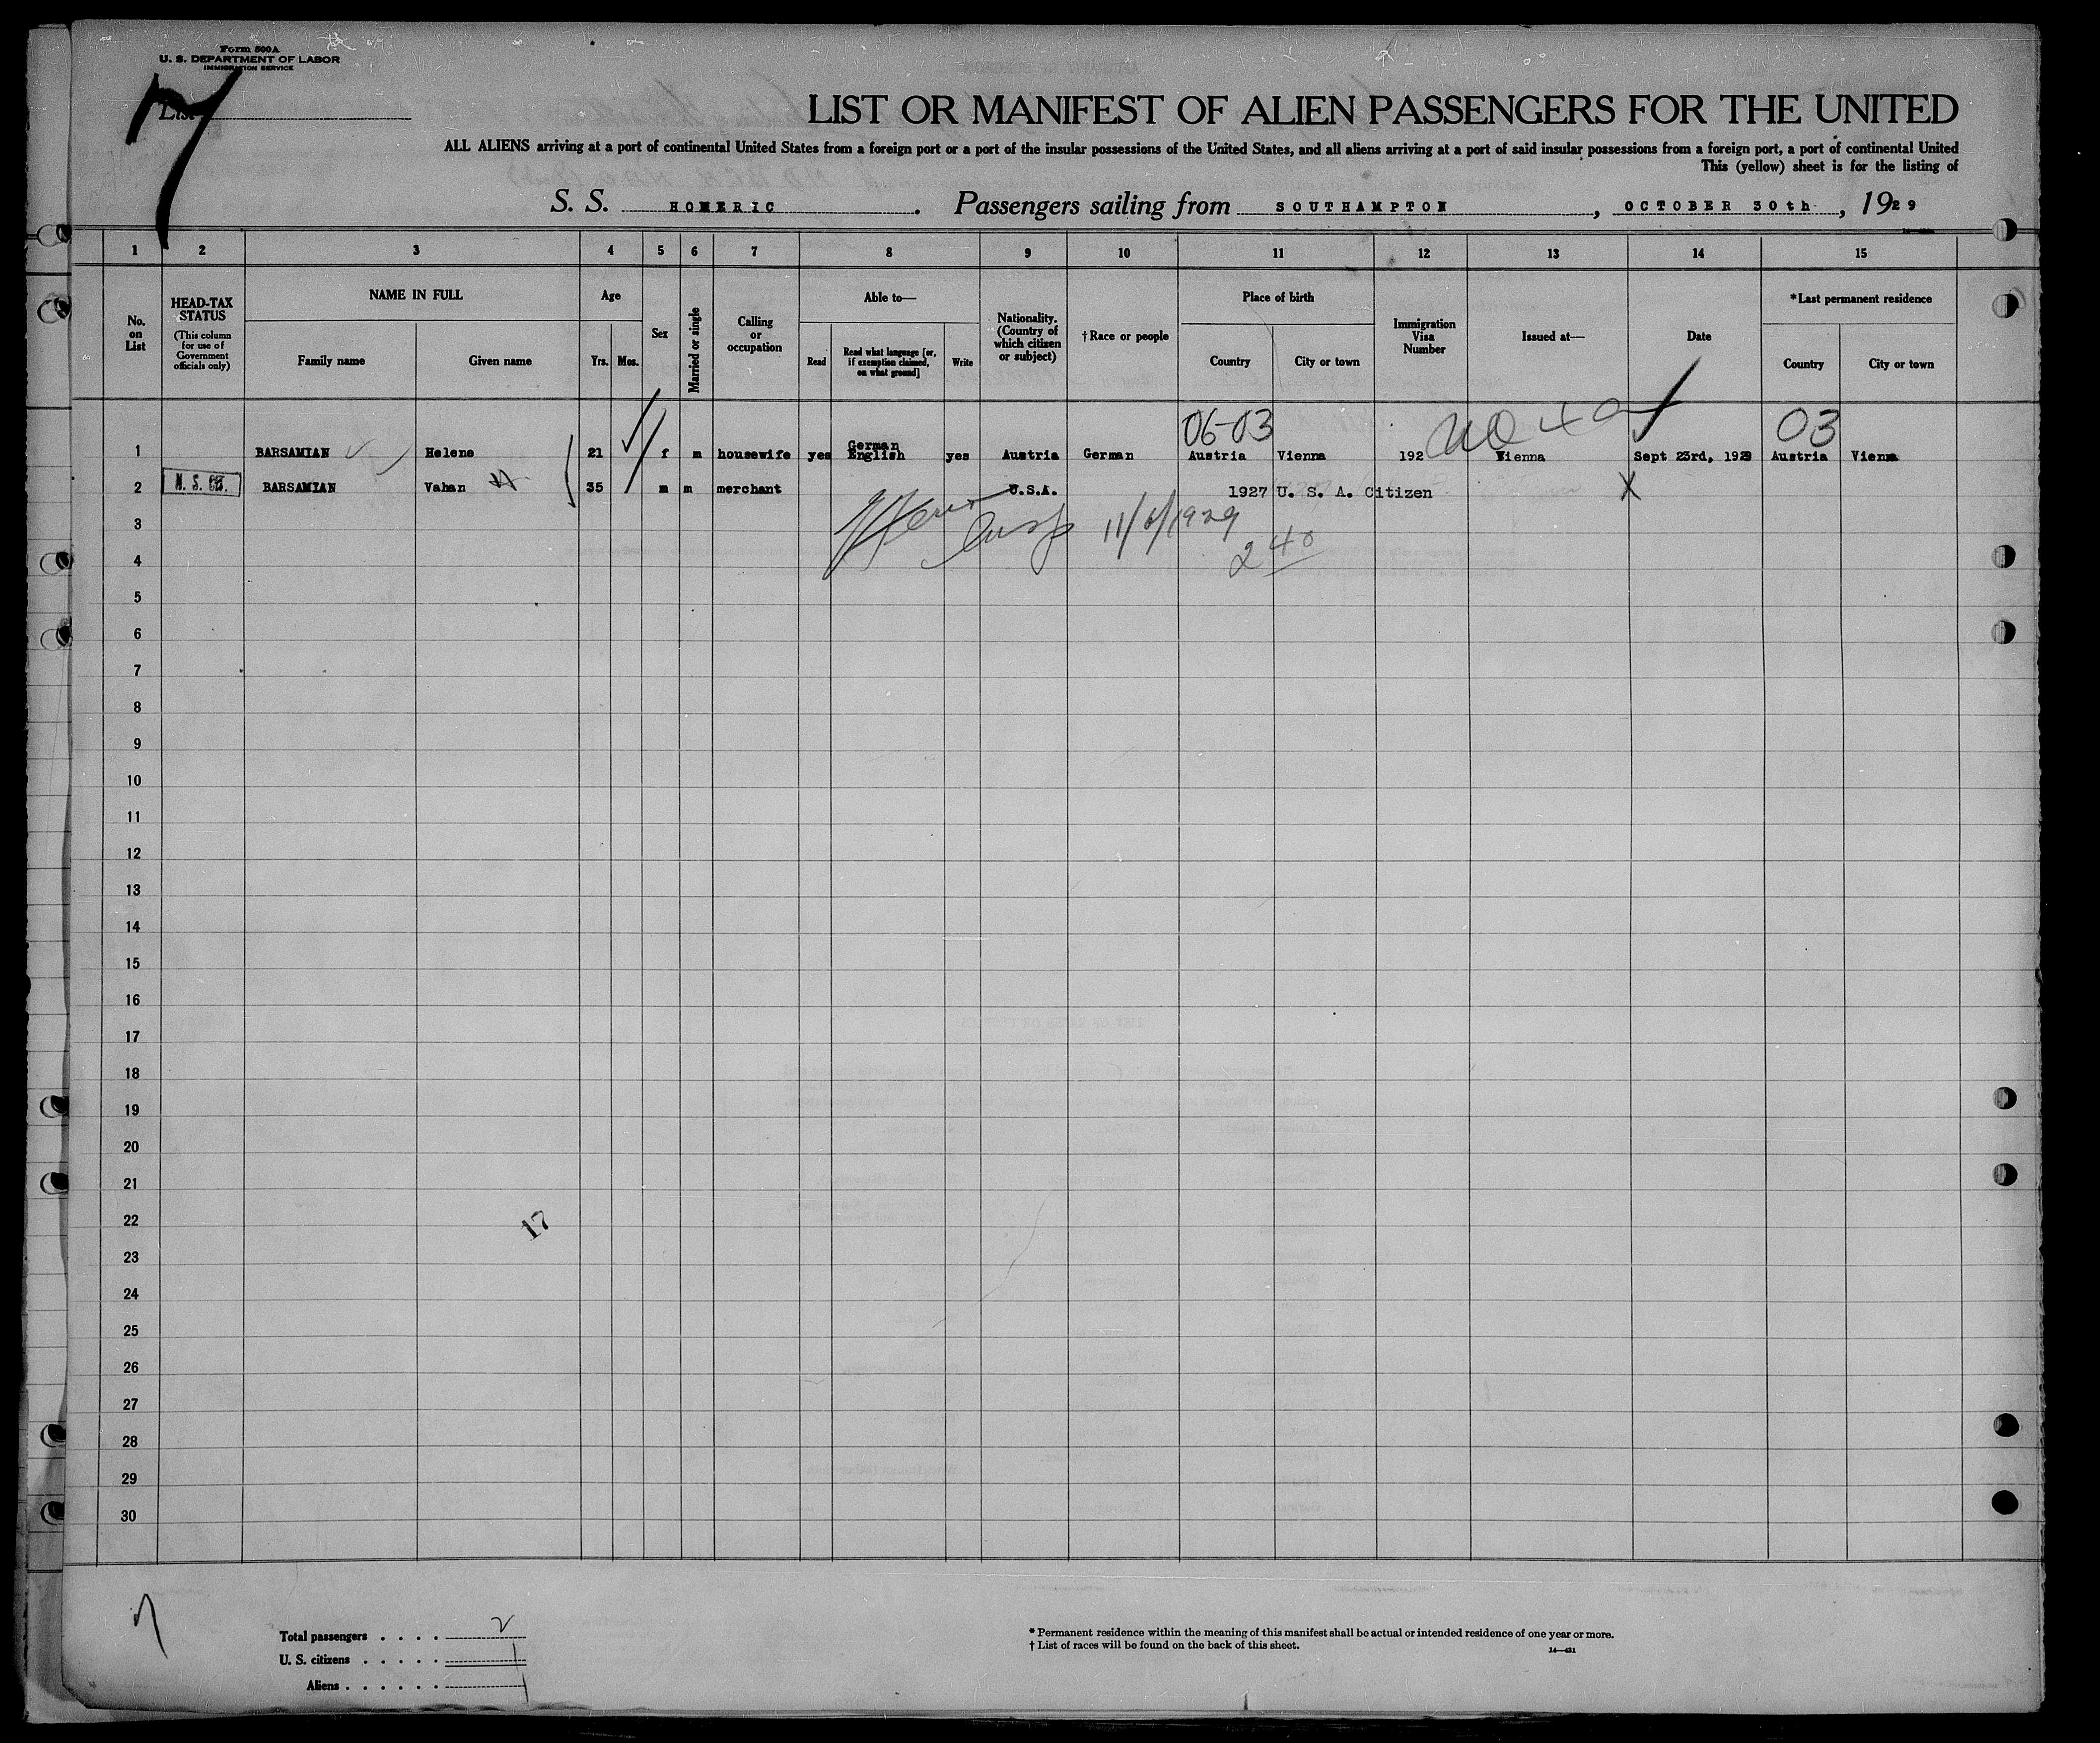 Form 500A
U. S. DEPARTMENT OF LABOR
IMMIGRATION SERVICE
7
List
LIST OR MANIFEST OF ALIEN PASSENGERS FOR THE UNITED
ALL ALIENS arriving at a port of continental United States from a foreign port or a port of the insular possessions of the United States, and all aliens arriving at a port of said insular possessions from a foreign port, a port of continental United
This (yellow) sheet is for the listing of
S. S. HOMERIC. Passengers sailing from SOUTHAMPTON, OCTOBER 30th, 1929
1 2 3 4 5 6 7 8 9 10 11 12 13 14 15
No. on List
HEAD-TAX STATUS
(This column for use of Government officials only)
NAME IN FULL
Family name Given name
Age
Yrs. Mos.
Sex
Married or single
Calling or occupation
Able to—
Read
Read what language [or, if exemption claimed, on what ground]
Write
Nationality. (Country of which citizen or subject)
†Race or people
Place of birth
Country City or town
Immigration Visa Number
Issued at—
Date
*Last permanent residence
Country City or town
06-03 03
1 BARSAMIAN Helene 21 f m housewife yes German English yes Austria German Austria Vienna 192 Vienna Sept 23rd, 1929 Austria Vienna
2 BARSAMIAN Vahan 35 m m merchant U.S.A. 1927 U. S. A. Citizen X
3
11/6/1929
240
4
5
6
7
8
9
10
11
12
13
14
15
16
17
18
19
20
21
22
17
23
24
25
26
27
28
29
30
7
Total passengers . . . . 2
U. S. citizens . . . . . 1
Aliens . . . . . . 1
* Permanent residence within the meaning of this manifest shall be actual or intended residence of one year or more.
† List of races will be found on the back of this sheet.
14—421